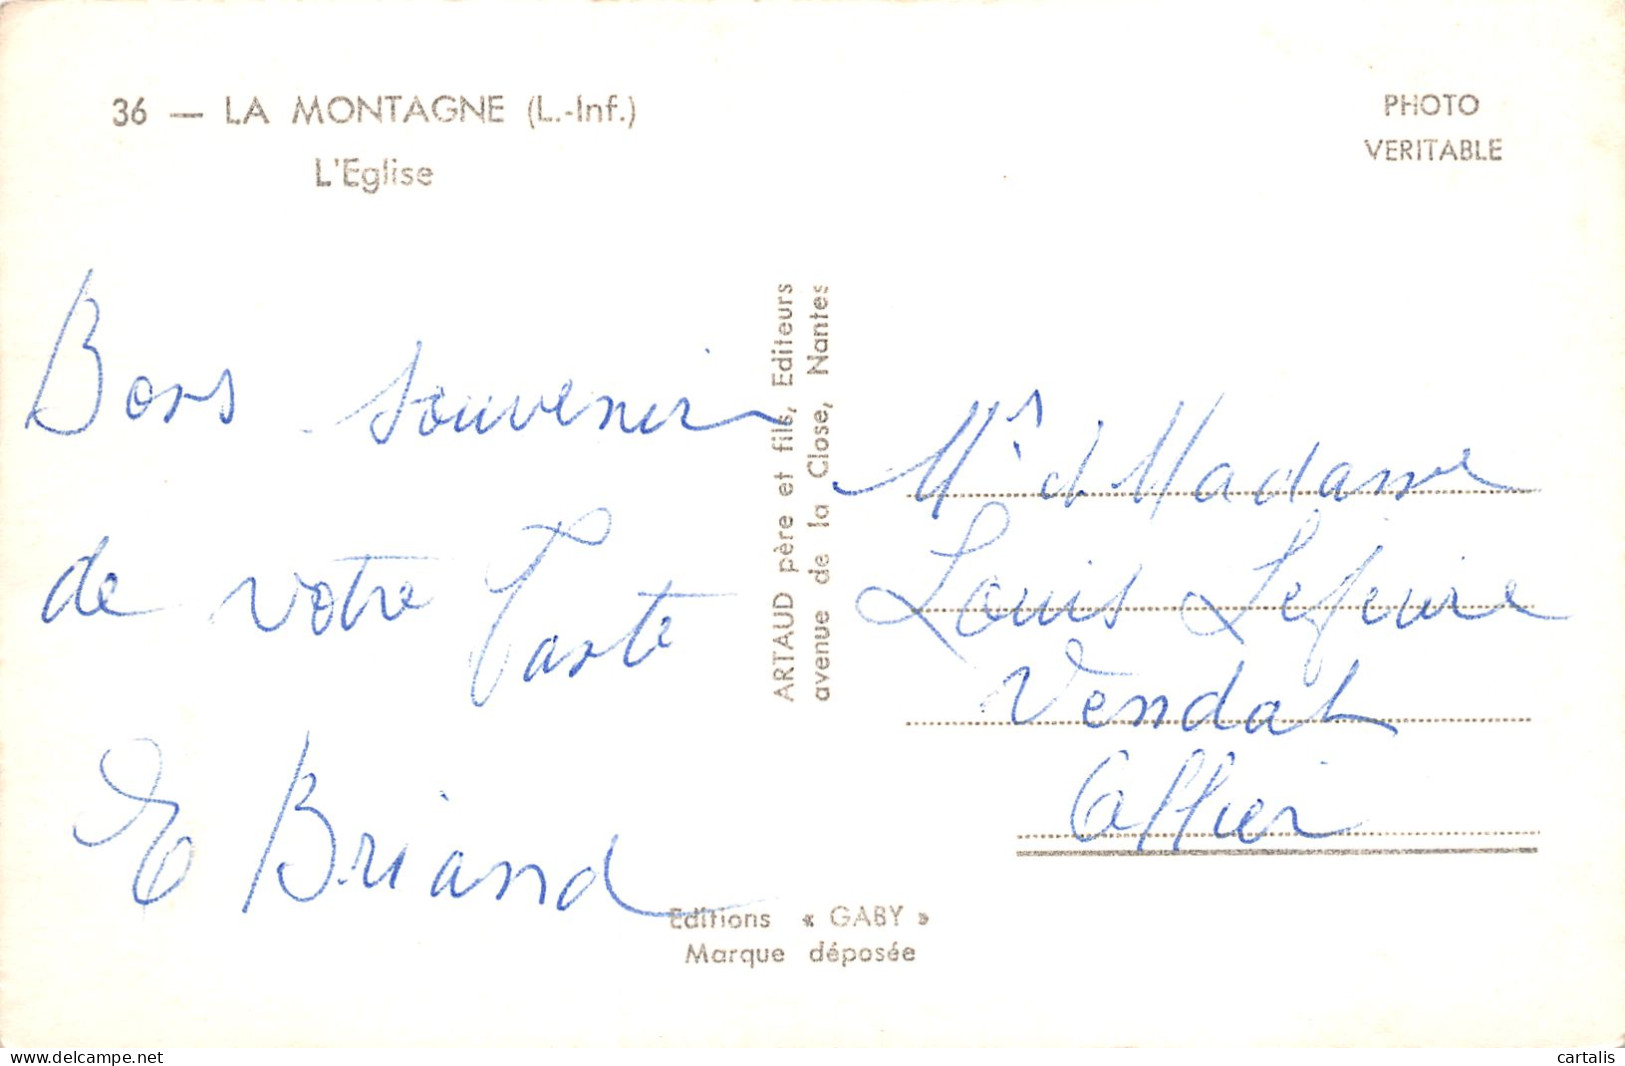 36 — LA MONTAGNE (L.-Inf.)
L'Eglise
PHOTO
VERITABLE
Bons souvenir
de votre Tante
E Briand
ARTAUD père et fils, Editeurs
avenue de la Close, Nantes
Mr et Madame
Louis Lefeuvre
Vendat
Allier
Editions « GABY »
Marque déposée
cartalis
https://www.delcampe.net